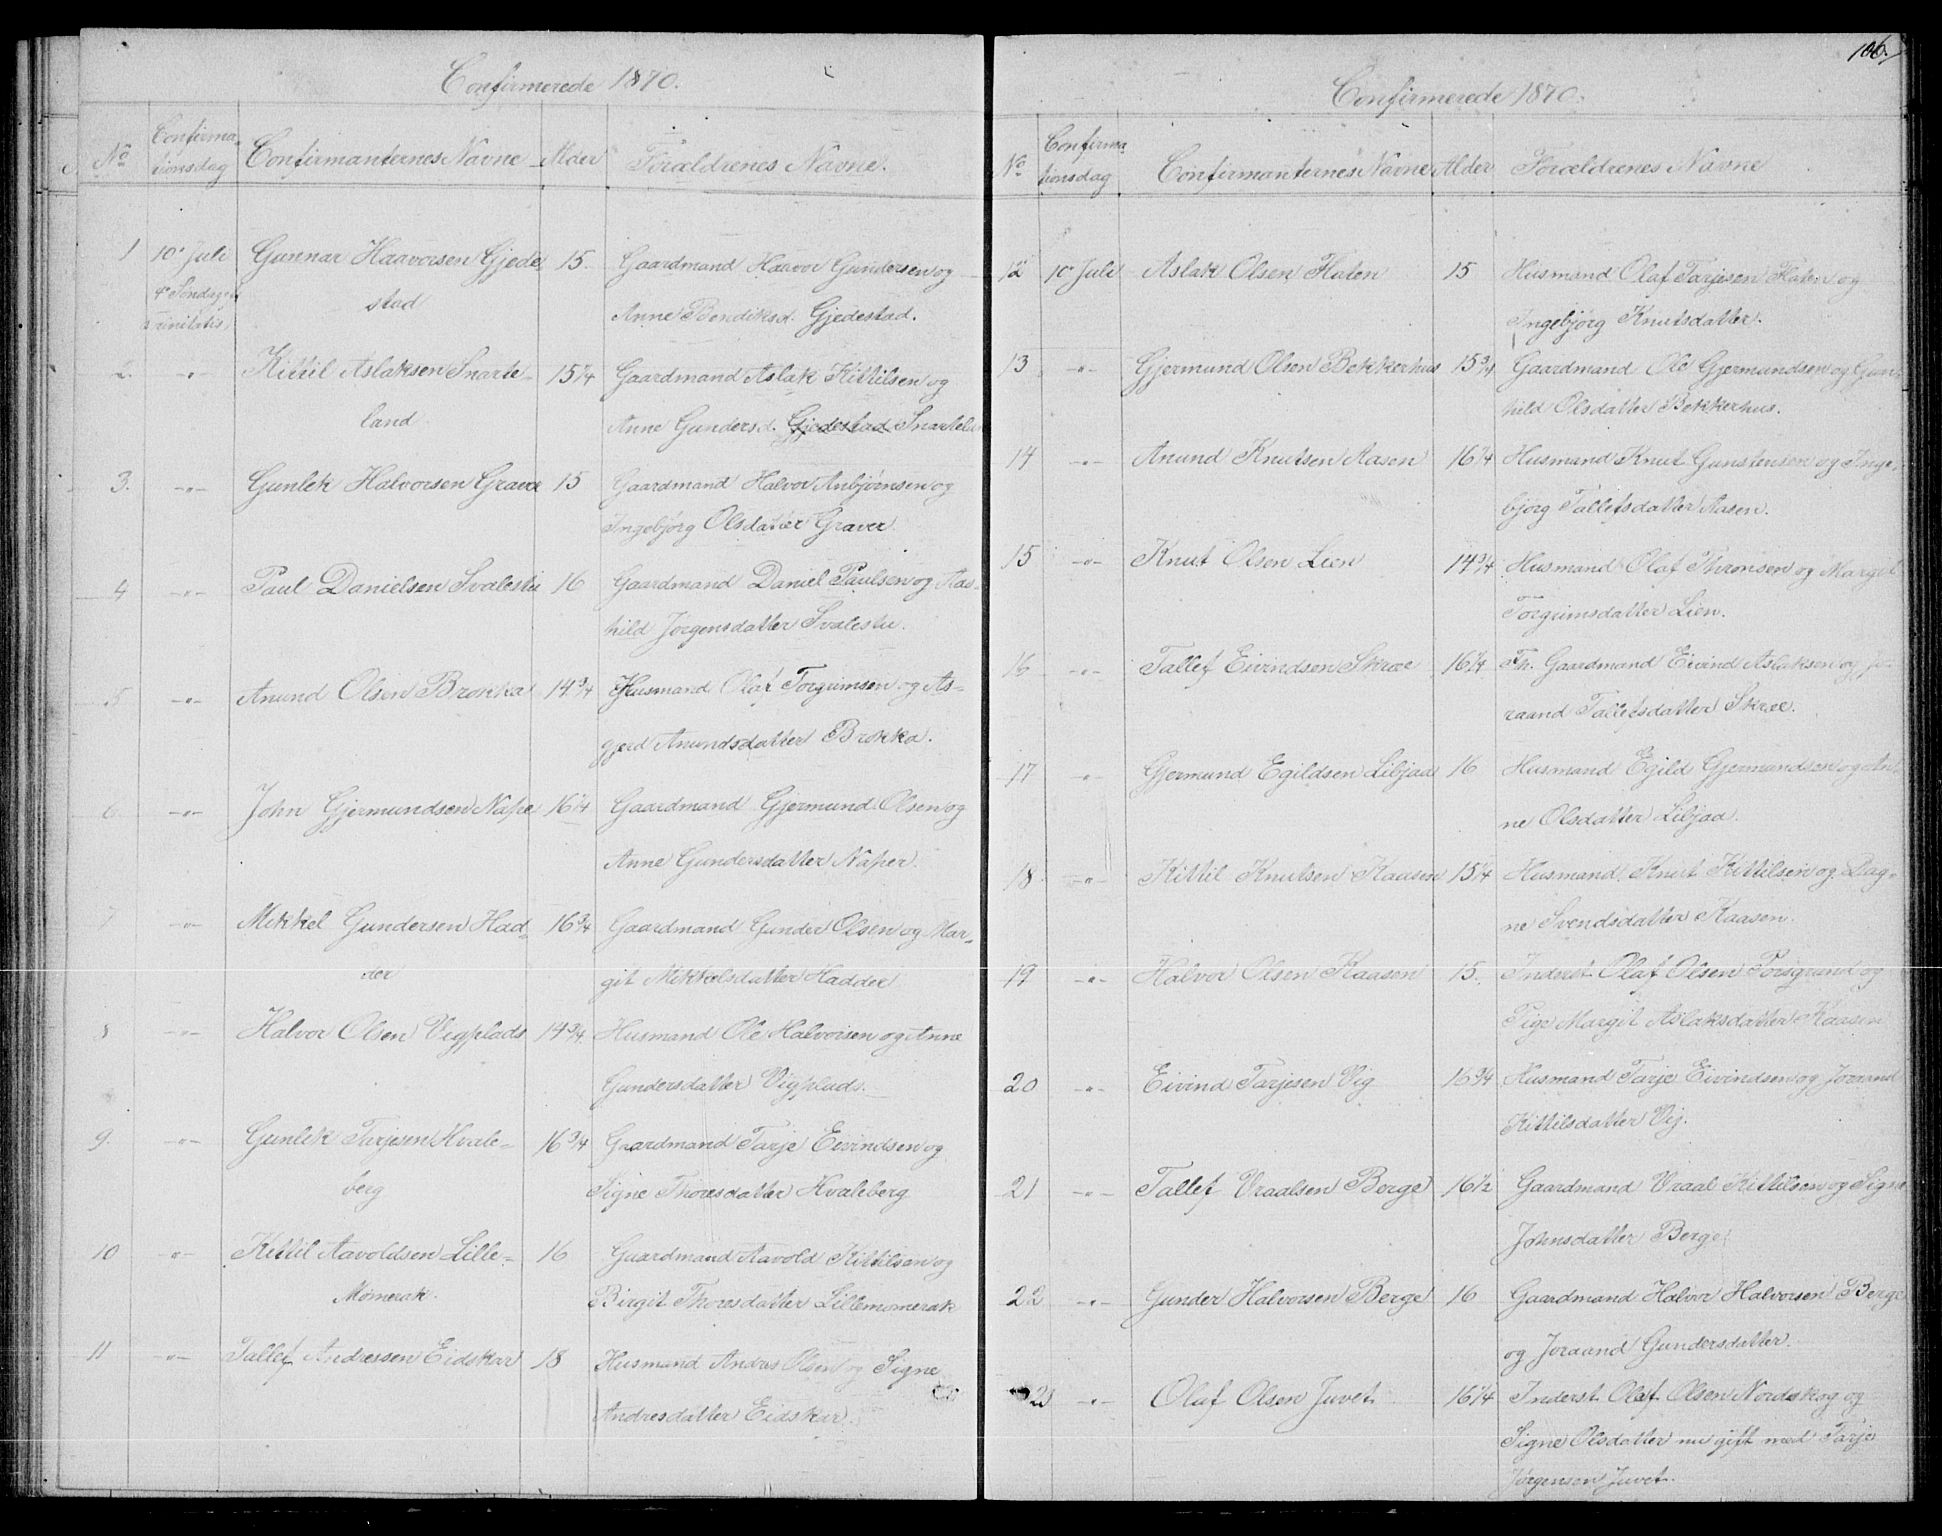 Confirmerede 1870.
No Confirmationsdag Confirmanternes Navne Alder Forældrenes Navne.
1 10' Juli Gunnar Haavorsen Gjede 15. Gaardmand Haavor Gundersen og
4' Søndag
Trinitatis, stad Anne Bendiksd. Gjedestad.
2. -"- Kittil Aslaksen Snarte- 15 1/4 Gaardmand Aslak Kittilsen og
land Anne Gundersd. Gjedestad Snartelan
3. -"- Gunlek Halvorsen Graver 15 Gaardmand Halvor Anbjørnsen og
Ingebjørg Olsdatter Graver.
4 -"- Paul Danielsen Svalestu 16 Gaardmand Daniel Paulsen og Aas-
hild Jørgensdatter Svalestu.
5 -"- Anund Olsen Brokka 14 3/4 Husmand Olaf Torgrimsen og As-
gjerd Anundsdatter Brokka.
6 -"- John Gjermundsen Naper 16 1/4 Gaardmand Gjermund Olsen og
Anne Gundersdatter Naper.
7 -"- Mikkel Gundersen Had- 16 3/4 Gaardmand Gunder Olsen og Mar-
der git Mikkelsdatter Hadder
8 -"- Halvor Olsen Vigplads 14 3/4. Husmand Ole Halvorsen og Anne
Gundersdatter Vigplads.
9. -"- Gunlek Tarjesen Hvale- 16 3/4 Gaardmand Tarje Eivindsen og
berg Signe Thoresdatter Hvaleberg
10 -"- Kittil Aavoldsen Lille- 16 Gaardmand Aavold Kittilsen og
Momerak. Birgit Thoresdatter Lillemomerak
11 -"- Tallef Andressen Eidskar 18 Husmand Andres Olsen og Signe
Andresdatter Eidskar.
106.
Confirmerede 1870.
No Confirmationsdag Confirmanternes Navne Alder Forældrenes Navne
12 10' Juli Aslak Olsen Flaten 15 Husmand Olaf Tarjesen Flaten og
Ingebjørg Knutsdatter.
13 -"- Gjermund Olsen Bekkerhus 15 3/4 Gaardmand Ole Gjermundsen og Gun-
hild Olsdatter Bekkerhus.
14 -"- Anund Knutsen Aasen 16 1/4 Husmand Knut Gunstensen og Inge-
bjørg Tallefsdatter Aasen.
15 -"- Knut Olsen Lien 14 3/4 Husmand Olaf Thronsen og Margit
Torgrimsdatter Lien.
16 -"- Tallef Eivindsen Skree 16 1/4 Fh. Gaardmand Eivind Aslaksen og Jo-
raand Tallefsdatter Skree.
17 -"- Gjermund Egildsen Libjaa 16 Husmand Egild Gjermundsen og An-
ne Olsdatter Libjaa.
18 -"- Kittil Knutsen Kaasen 15 1/4 Husmand Knut Kittilsen og Dag-
ne Svendsdatter Kaasen.
19 -"- Halvor Olsen Kaasen 15. Inderst Olaf Olsen Porsgrund og
Pige Margit Aslaksdatter Kaasen
20 -"- Eivind Tarjesen Vig 16 3/4 Husmand Tarje Eivindsen og Joraand
Kittilsdatter Vig.
21 -"- Tallef Vraalsen Berge 16 1/2 Gaardmand Vraal Kittilsen og Signe
Johnsdatter Berge.
22 -"- Gunder Halvorsen Berge 16 Gaardmand Halvor Halvorsen Berge
og Joraand Gundersdatter.
23 -"- Olaf Olsen Juvet 16 1/4 Inderst Olaf Olsen Nordskog og
Signe Olsdatter nu gift med Tarje
Jørgensen Juvet.